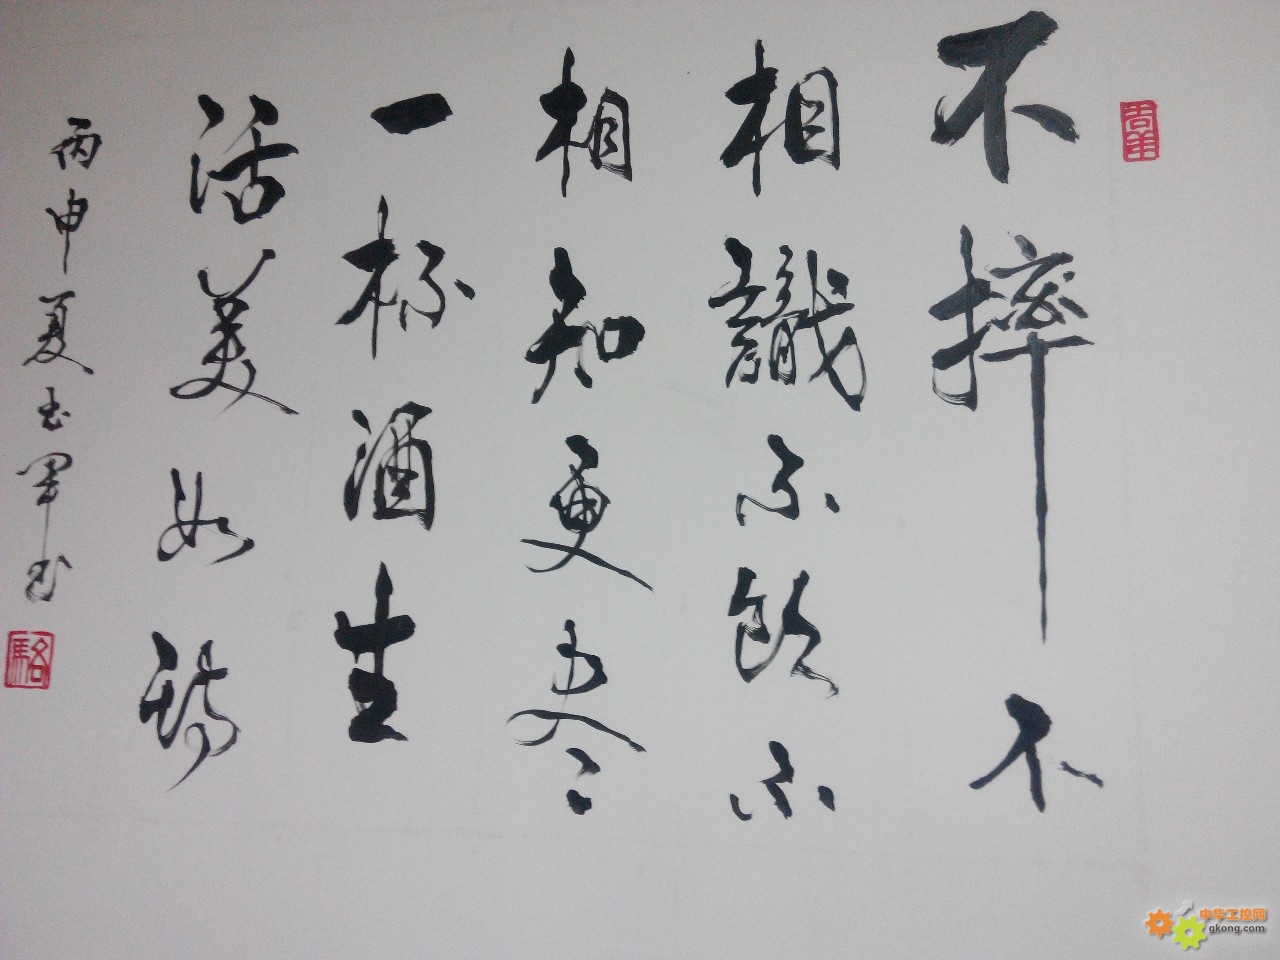 不摔不
相識不飲不
相知更尽
一杯酒生
活美如
丙申夏玉军书
駱
中华工控网
gkong.com